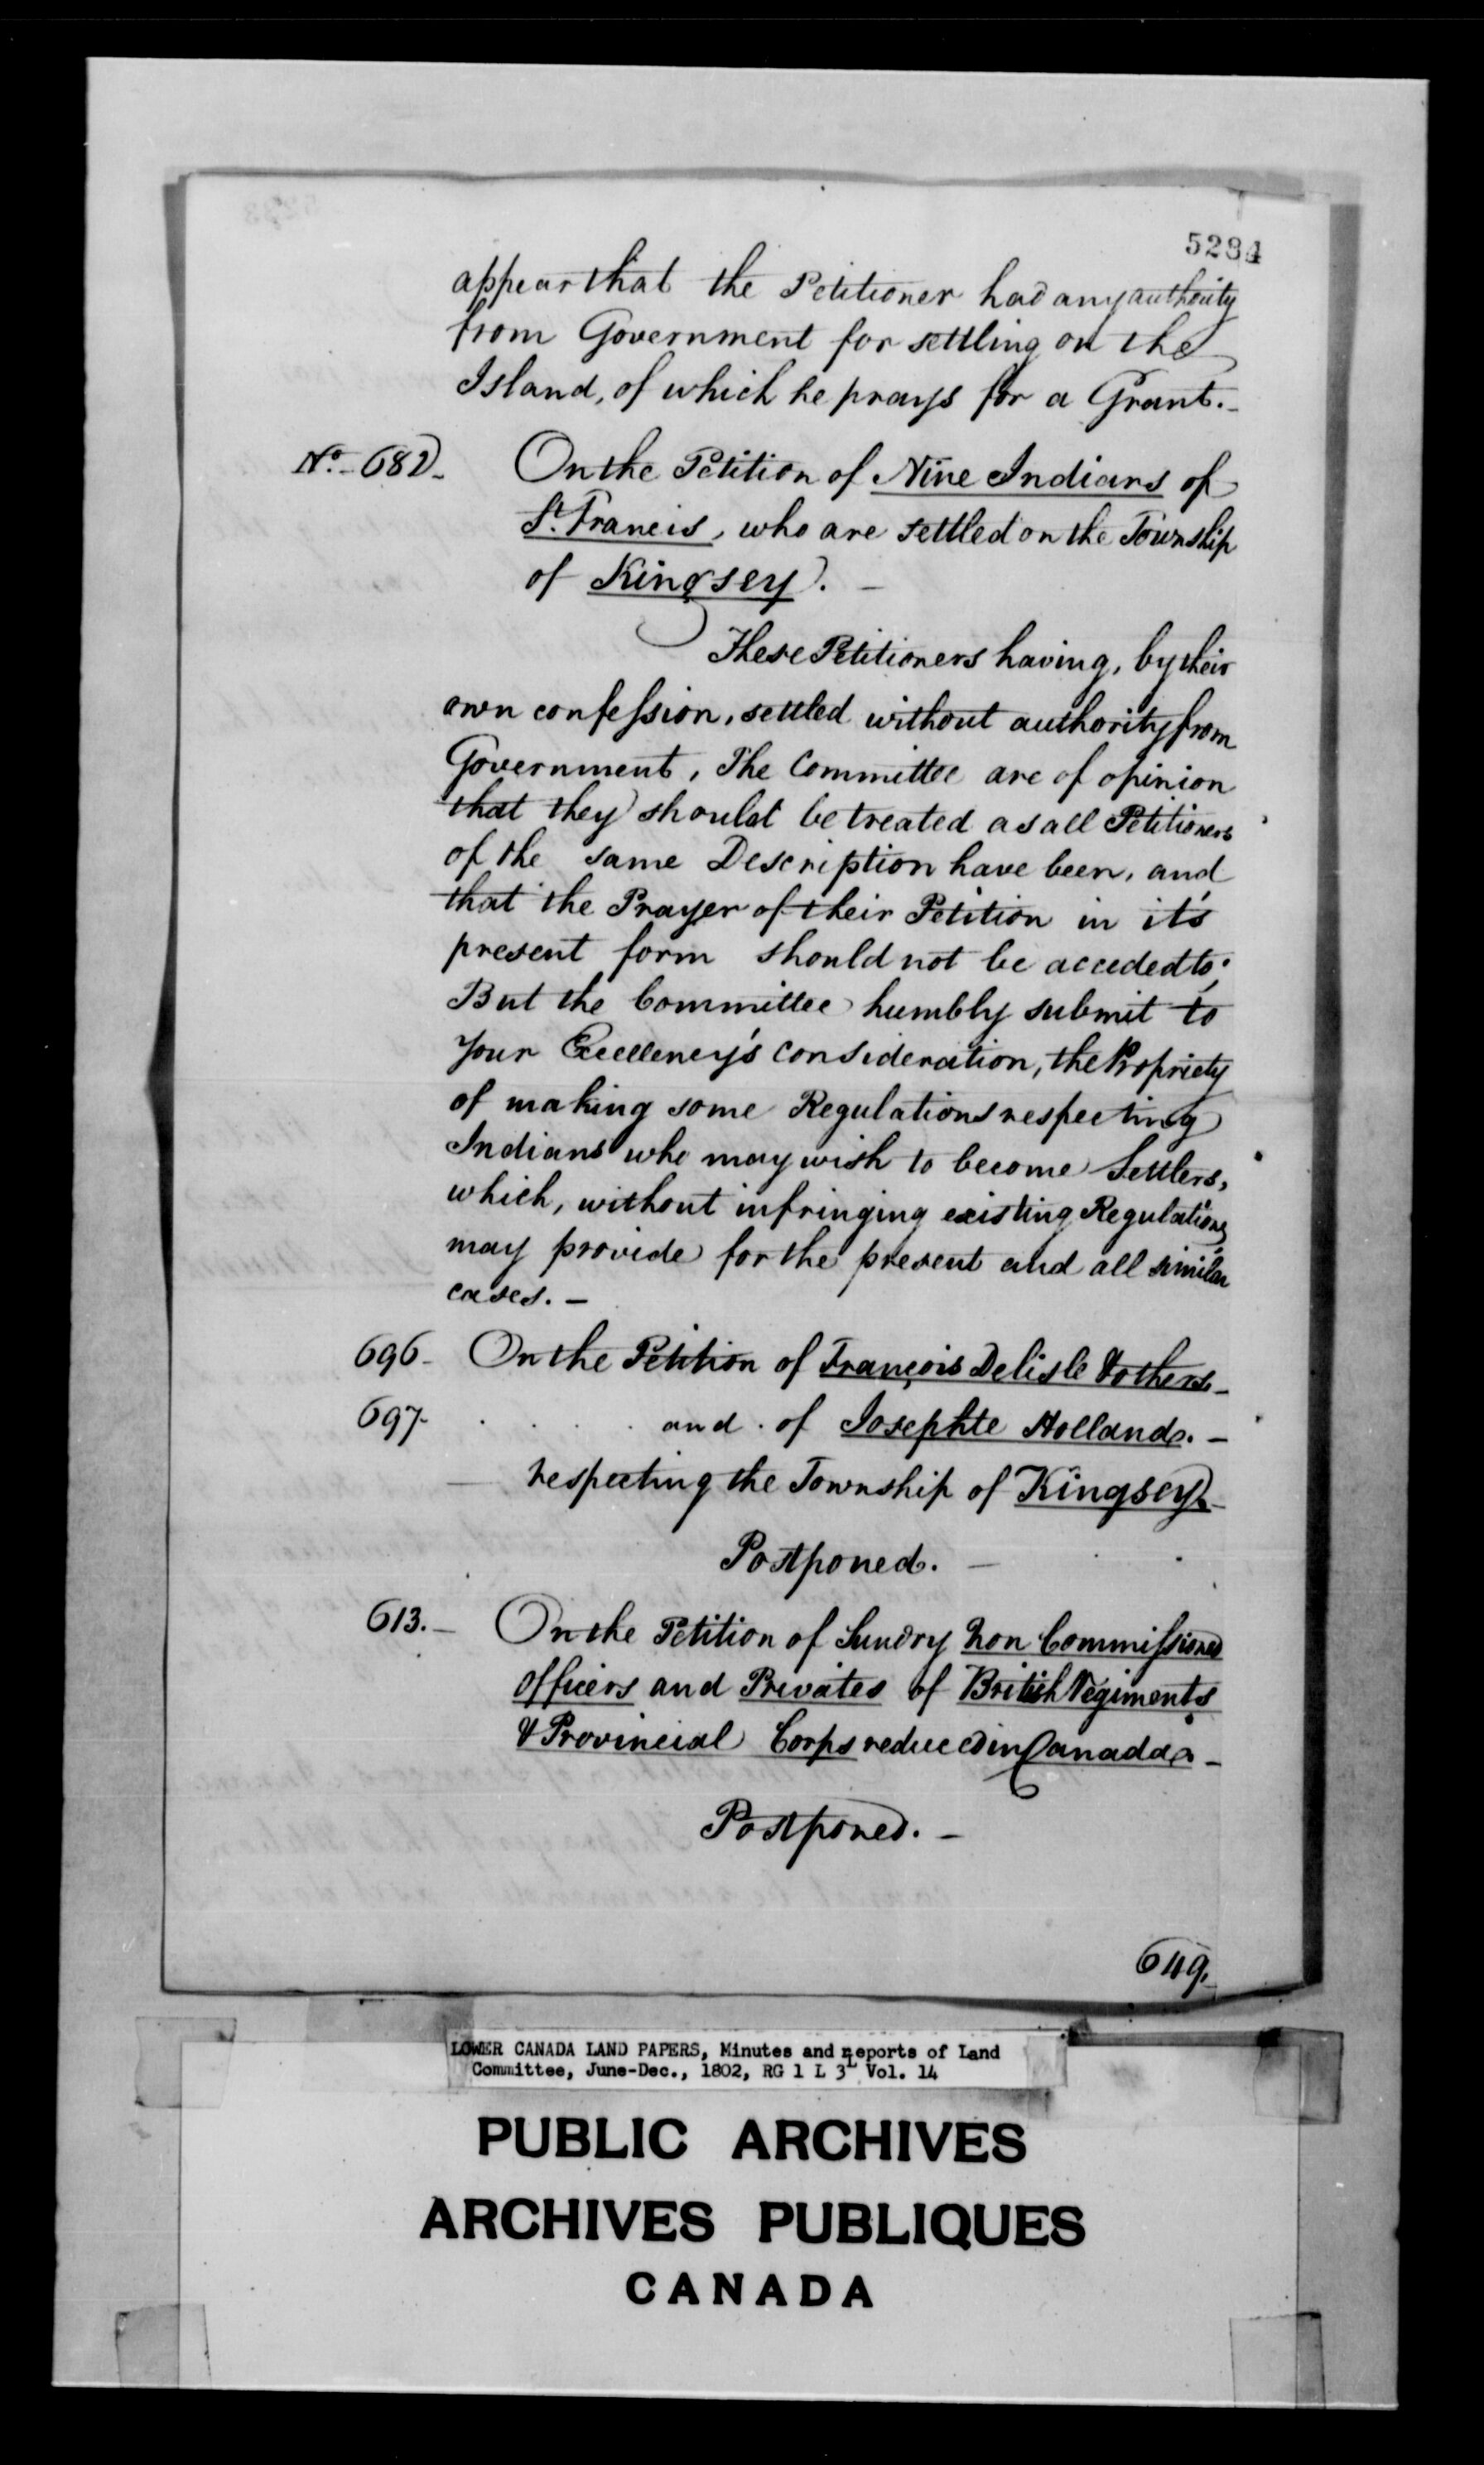 5284
appear that the Petitioner had any authority
from Government for settling on the
Island, of which he prays for a Grant. -
No. - 682 -
On the Petition of Nine Indians of
St. Francis, who are settled on the Township
of Kingsey. -
These Petitioners having, by their
own confession, settled without authority from
Government, The Committee are of opinion
that they should be treated as all Petitioners
of the same Description have been, and
that the Prayer of their Petition in it's
present form should not be acceded to;
But the Committee humbly submit to
Your Excellency's consideration, the Propriety
of making some Regulations respecting
Indians who may wish to become Settlers,
which, without infringing existing Regulations
may provide for the present and all similar
cases. -
696 - On the Petition of François Delisle & others -
697 - . . . . and . of Josephte Holland. -
respecting the Township of Kingsey -
Postponed. -
613. - On the Petition of Sundry Non Commissioned
Officers and Privates of British Regiments
& Provincial Corps reduced in Canada -
Postponed. -
649.
LOWER CANADA LAND PAPERS, Minutes and Reports of Land
Committee, June-Dec., 1802, RG 1 L 3L Vol. 14
PUBLIC ARCHIVES
ARCHIVES PUBLIQUES
CANADA